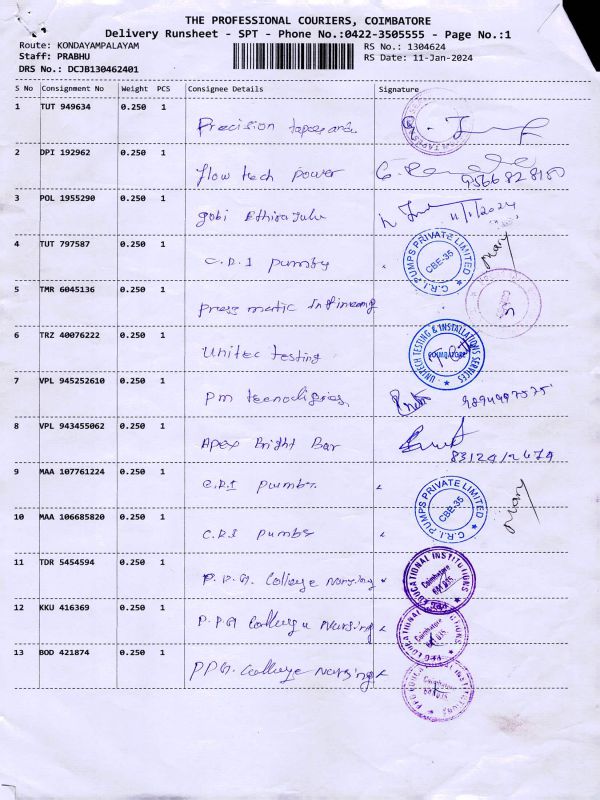 THE PROFESSIONAL COURIERS, COIMBATORE
Delivery Runsheet - SPT - Phone No.:0422-3505555 - Page No.:1
Route: KONDAYAMPALAYAM
RS No.: 1304624
Staff: PRABHU
RS Date: 11-Jan-2024
DRS No.: DCJB130462401
S No Consignment No Weight PCS Consignee Details Signature
1 TUT 949634 0.250 1
Precision tapes and
2 DPI 192962 0.250 1
flow tech power
9566828180
3 POL 1955290 0.250 1
gobi Ethirajulu 11/1/2024
4 TUT 797587 0.250 1
C.R.I pumbs
C.R.I. PUMPS PRIVATE LIMITED
CBE-35
Mary
5 TMR 6045136 0.250 1
press matic
6 TRZ 40076222 0.250 1
Unitec testing
UNITECH TESTING & INSTALLATION SERVICES
COIMBATORE
7 VPL 945252610 0.250 1
pm 9894997575
8 VPL 943455062 0.250 1
Apex Bright Bar
9 MAA 107761224 0.250 1
C.R.I pumbs
C.R.I. PUMPS PRIVATE LIMITED
CBE-35
Mary
10 MAA 106685820 0.250 1
C.R.I pumbs
11 TDR 5454594 0.250 1
P.P.G. College Nursing
PPG EDUCATIONAL INSTITUTIONS
Coimbatore
641 035
12 KKU 416369 0.250 1
P.P.G College Nursing
PPG EDUCATIONAL INSTITUTIONS
Coimbatore
641 035
13 BOD 421874 0.250 1
PPG. College Nursing
PPG EDUCATIONAL INSTITUTIONS
Coimbatore
641 035